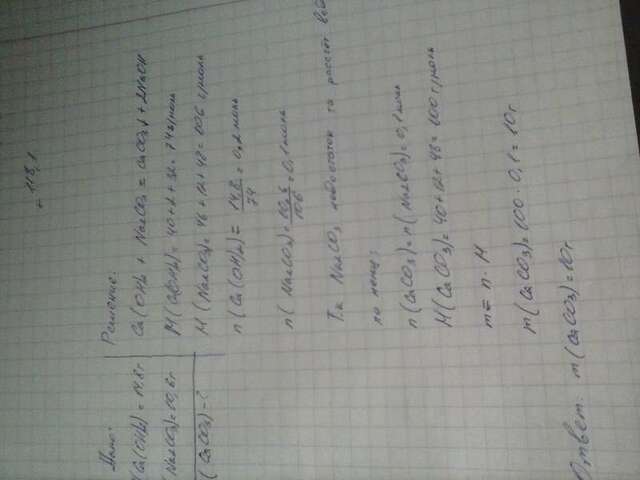 Дано:
Ca(OH)2 = 14.8г
(Na2CO3) = 10,6г
(CaCO3) - ?
Решение:
Ca(OH)2 + Na2CO3 = CaCO3↓ + 2NaOH
M(Ca(OH)2) = 40 + 2 + 32 = 74 г/моль
M(Na2CO3) = 46 + 12 + 48 = 106 г/моль
n(Ca(OH)2) = 14.8/74 = 0,2 моль
n(Na2CO3) = 10,6/106 = 0,1 моль
Т.к Na2CO3 недостаток то рассчёт
по нему:
n(CaCO3) = n(Na2CO3) = 0,1 моль
M(CaCO3) = 40 + 12 + 48 = 100 г/моль
m = n · M
m(CaCO3) = 100 · 0,1 = 10г
Ответ: m(CaCO3) = 10г